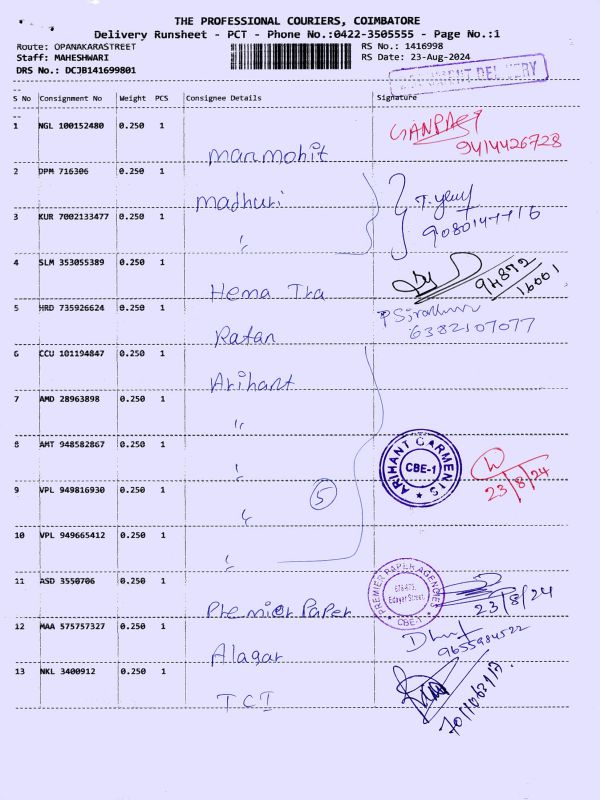 THE PROFESSIONAL COURIERS, COIMBATORE
Delivery Runsheet - PCT - Phone No.:0422-3505555 - Page No.:1
Route: OPANAKARASTREET
RS No.: 1416998
Staff: MAHESHWARI
RS Date: 23-Aug-2024
DRS No.: DCJB141699801
S No Consignment No Weight PCS Consignee Details Signature
1 NGL 100152480 0.250 1
manmohit
GANPATI
9414426728
2 DPM 716306 0.250 1
madhuri
3 KUR 7002133477 0.250 1
"
4 SLM 353055389 0.250 1
Hema Tra
94872
16001
5 HRD 735926624 0.250 1
Ratan
6382107077
6 CCU 101194847 0.250 1
Arihant
7 AMD 28963898 0.250 1
"
8 AMT 948582867 0.250 1
"
ARIHANT GARMENTS
CBE-1
23/8/24
9 VPL 949816930 0.250 1
"
5
10 VPL 949665412 0.250 1
"
11 ASD 3550706 0.250 1
Premier Paper
PREMIER PAPER AGENCIES
Edayar Street,
CBE-1
23/8/24
12 MAA 575757327 0.250 1
Alagar
13 NKL 3400912 0.250 1
TCI